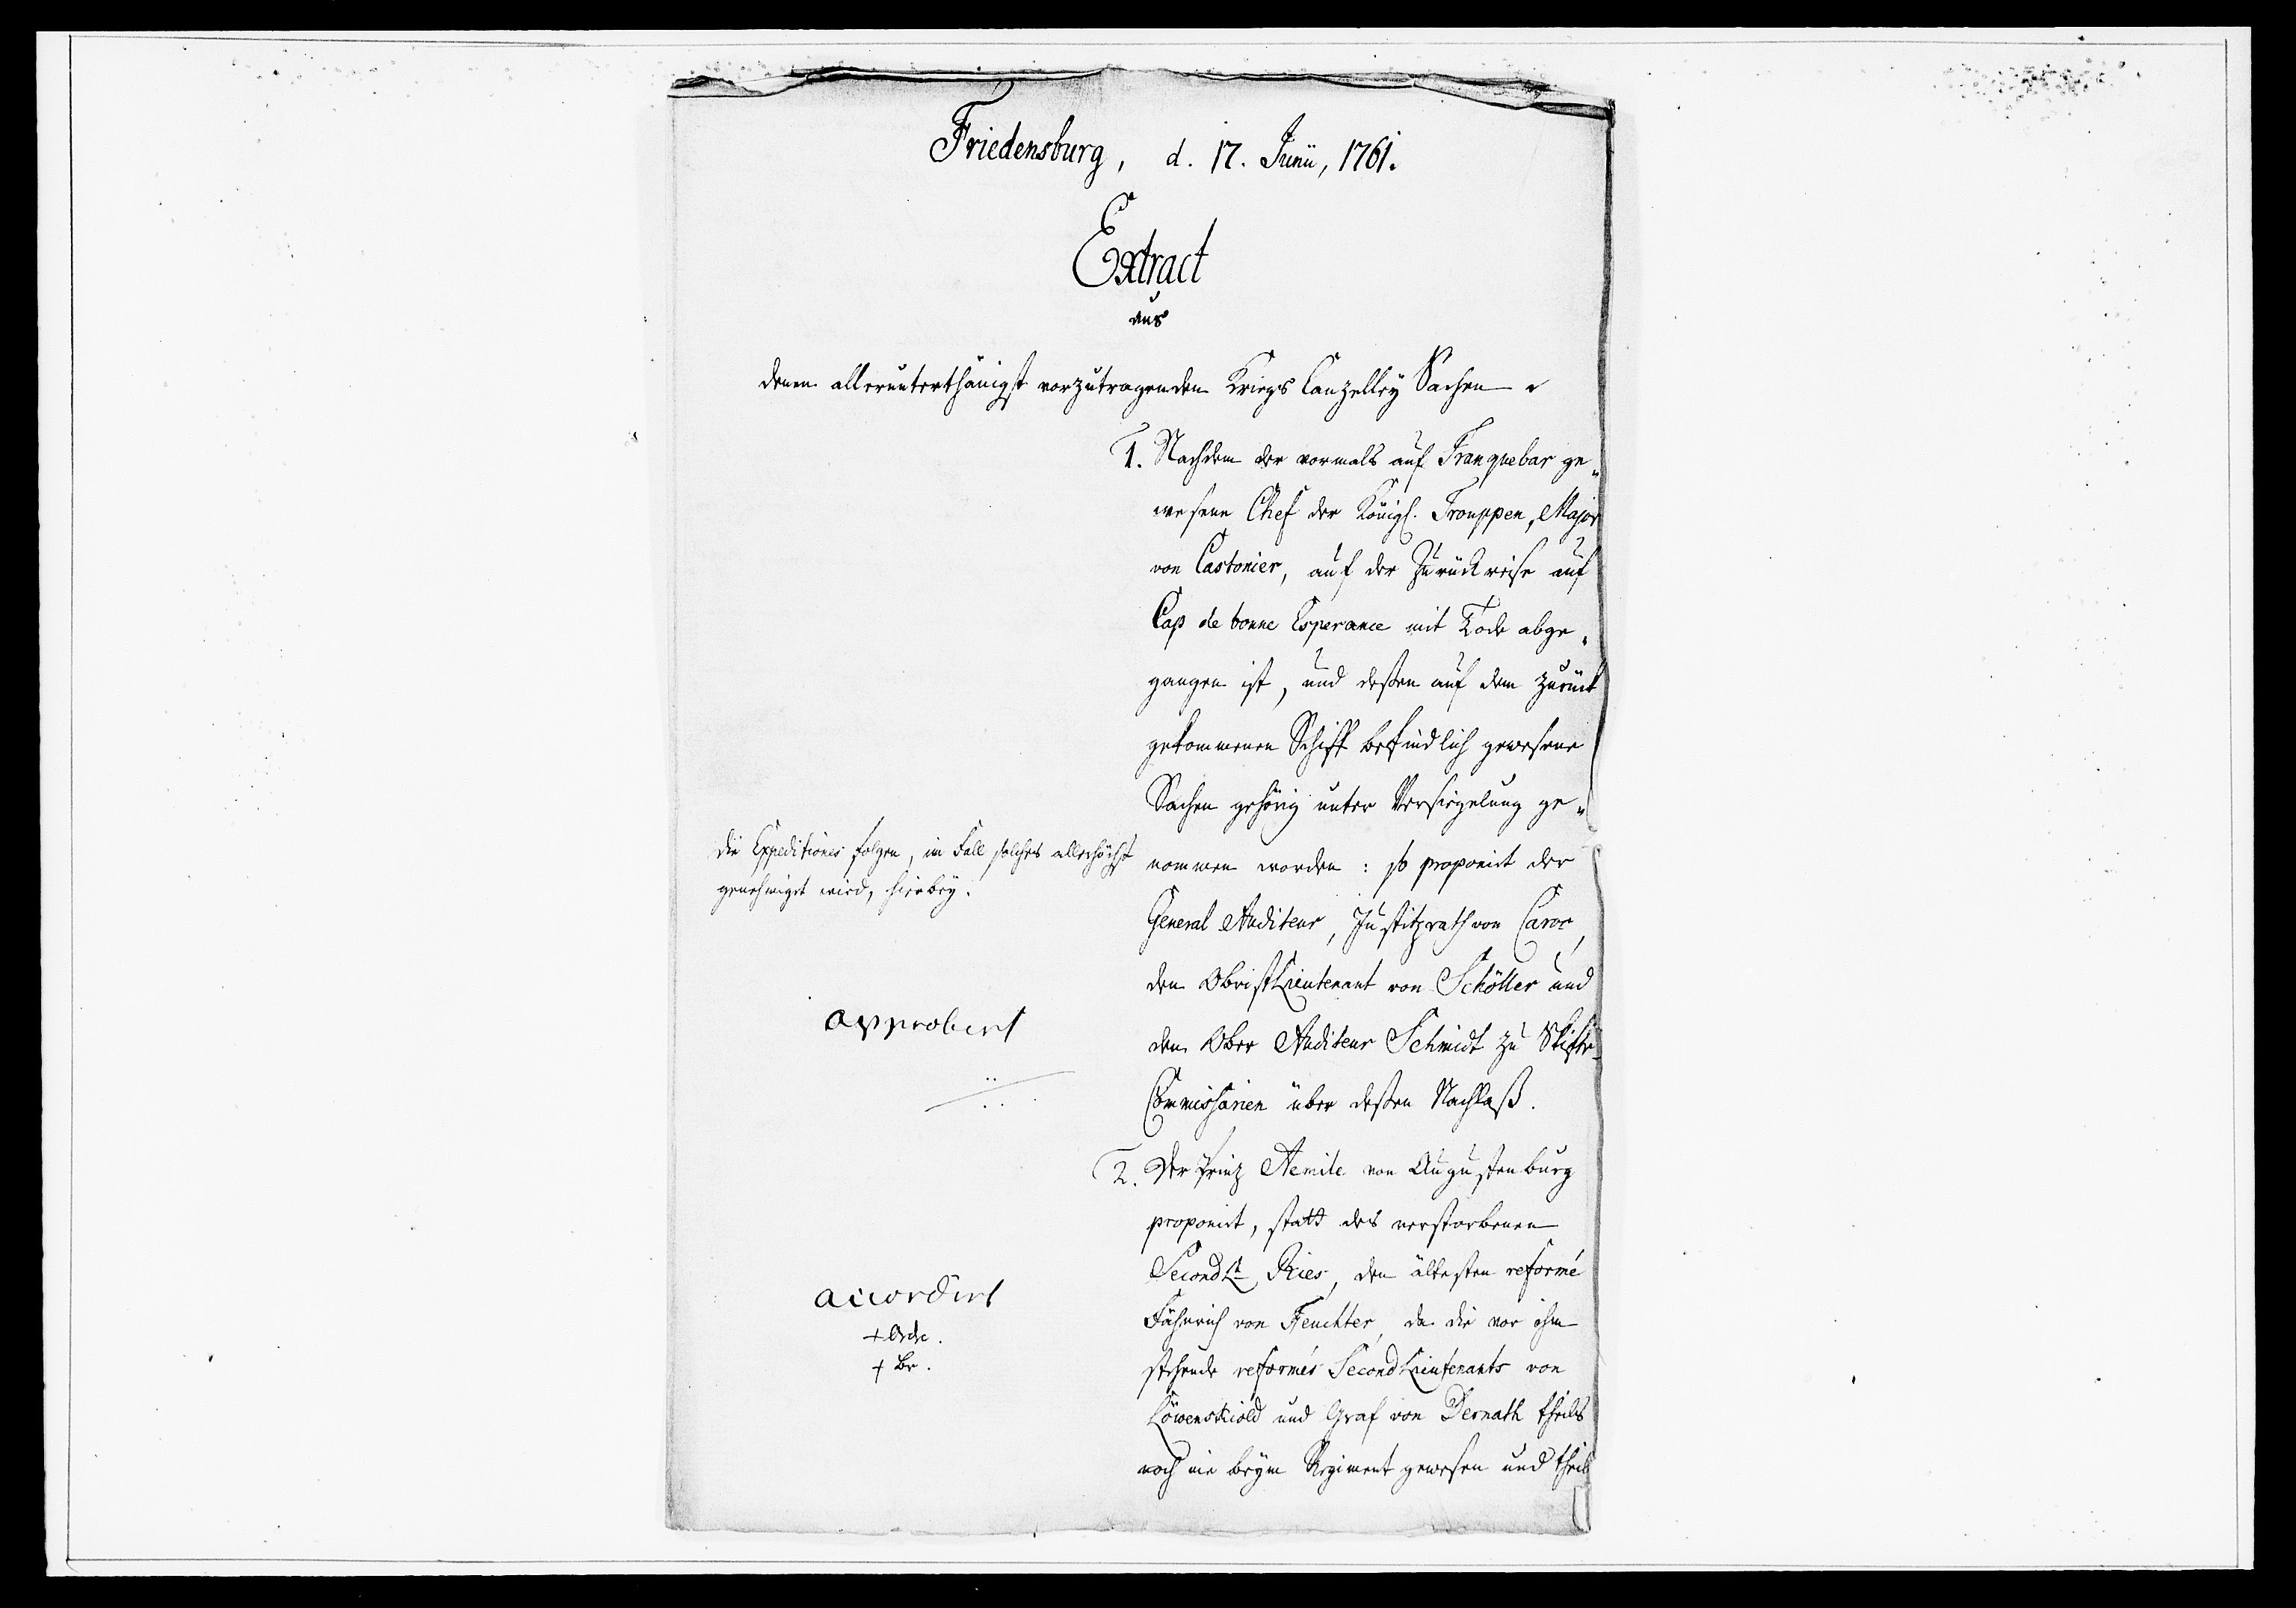 Friedensburg, d. 17. Junii, 1761.
Extract
aus
denen allerunterthänigst vorzutragenden Kriegs Canzelley Sachen
1. Nachdem der vormals auf Tranquebar ge-
wesene Chef der Königl. Trouppen, Major
von Castonier, auf der Zurückreise auf
Cap de bonne Esperance mit Tode abge-
gangen ist, und deßen auf dem zurück
gekommenen Schiff befindlich gewesene
Sachen gehörig unter Versiegelung ge-
nommen worden: so proponirt der
General Auditeur, Justitzrath von Caroc,
den ObristLieutenant von Schöller und
den Ober Auditeur Schmidt zu Skifte-
Commissarien über deßen Nachlaß.
die Expeditiones folgen, im Fall solches allerhöchst
genehmiget wird, hierbey.
approbirt
2. Der Prinz Aemile von Augustenburg
proponirt, statt des verstorbenen
SecondLt Ries, den ältesten reformé
Fähnrich von Feuchter, da die vor ihm
stehende reformés SecondLieutenants von
Löwenskiold und Graf von Dernath theils
noch nie beym Regiment gewesen und theils
accordirt
+ Ordr.
+ Br.